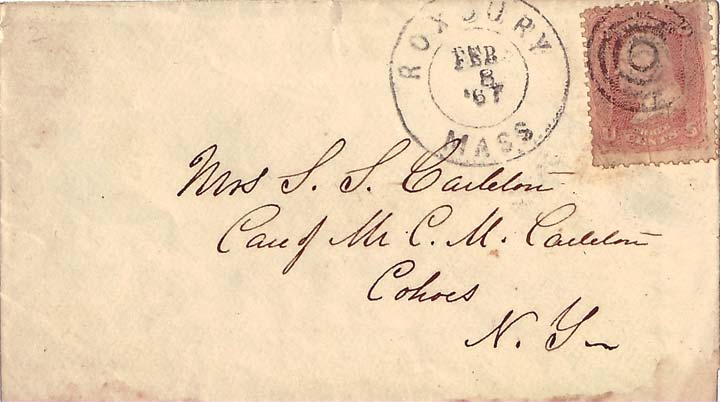 ROXBURY
FEB
8
'67
MASS
Mrs S. S. Carleton
Care of Mr C. M. Carleton
Cohoes
N. Y.